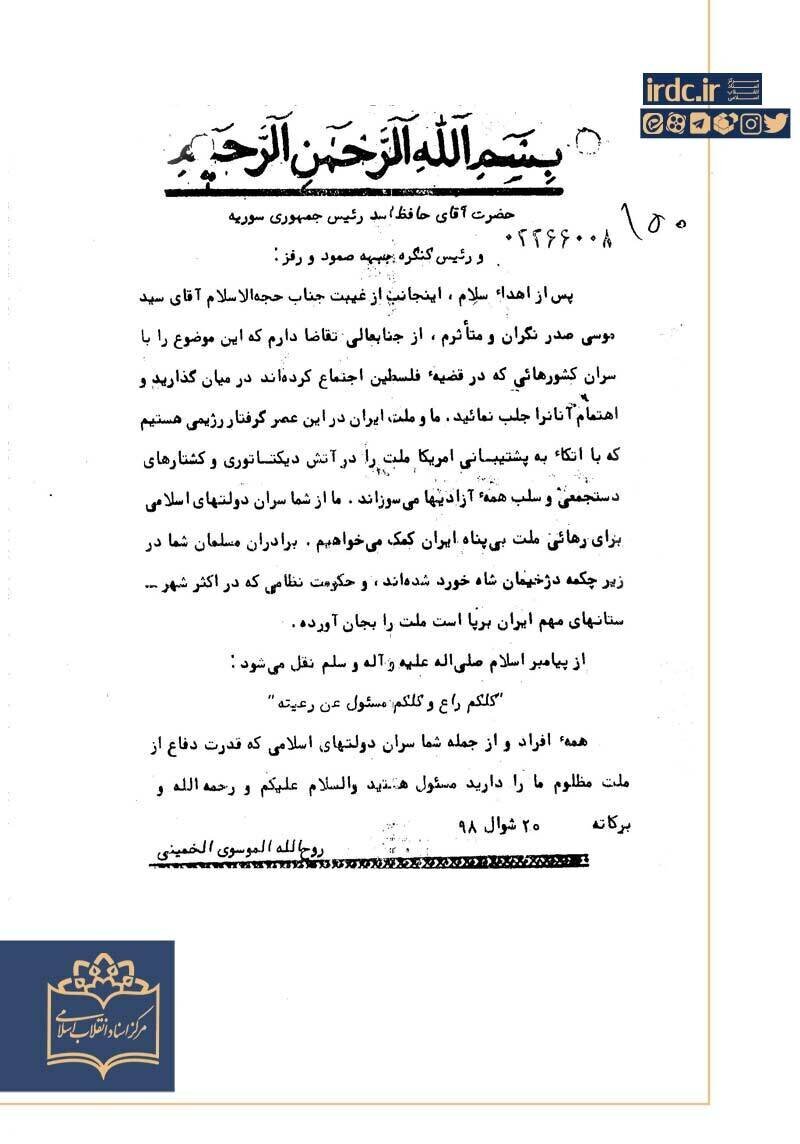 irdc.ir
مرکز اسناد انقلاب اسلامی
بِسْمِ اللهِ الرَّحْمٰنِ الرَّحیمِ
حضرت آقای حافظ اسد رئیس جمهوری سوریه
۱۵۰
۰۲۲۶۶۰۰۸
و رئیس کنگره جبهه صمود و رفز :
پس از اهداء سلام ، اینجانب از غیبت جناب حجه‌الاسلام آقای سید
موسی صدر نگران و متأثرم ، از جنابعالی تقاضا دارم که این موضوع را با
سران کشورهائی که در قضیهٔ فلسطین اجتماع کرده‌اند در میان گذارید و
اهتمام آنانرا جلب نمائید . ما و ملت ایران در این عصر گرفتار رژیمی هستیم
که با اتکاء به پشتیبانی امریکا ملت را در آتش دیکتاتوری و کشتارهای
دستجمعی و سلب همهٔ آزادیها می‌سوزاند . ما از شما سران دولتهای اسلامی
برای رهائی ملت بی‌پناه ایران کمک می‌خواهیم . برادران مسلمان شما در
زیر چکمه دژخیمان شاه خورد شده‌اند ، و حکومت نظامی که در اکثر شهر ـــ
ستانهای مهم ایران برپا است ملت را بجان آورده .
از پیامبر اسلام صلی‌اله علیه و آله و سلم نقل می‌شود :
"کلکم راع و کلکم مسئول عن رعیته"
همهٔ افراد و از جمله شما سران دولتهای اسلامی که قدرت دفاع از
ملت مظلوم ما را دارید مسئول هستید والسلام علیکم و رحمه الله و
برکاته ۲۰ شوال ۹۸
روح‌الله الموسوی الخمینی
مرکز اسناد انقلاب اسلامی